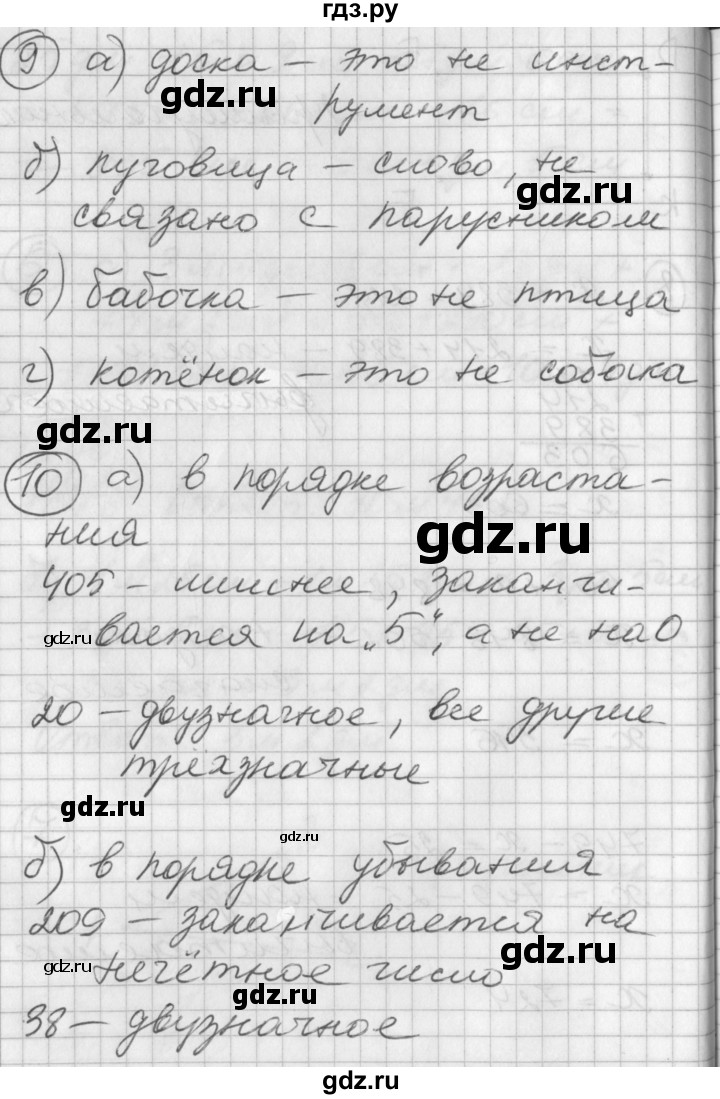 гдз.ру
9 а) доска – это не инст-
gdz.ru
румент
б) пуговица – слово, не
gdz.ru
связано с парусником
в) бабочка – это не птица
г) котёнок – это не собачка
gdz.ru
10 а) в порядке возраста-
gdz.ru
ния
405 – лишнее, заканчи-
gdz.ru вается на „5“, а не на 0
20 – двузначное, все другие
трёхзначные
gdz.ru
gdz.ru
б) в порядке убывания
209 – заканчивается на
gdz.ru нечётное число
gdz.ru
gdz.ru
38 – двузначное
gdz.ru